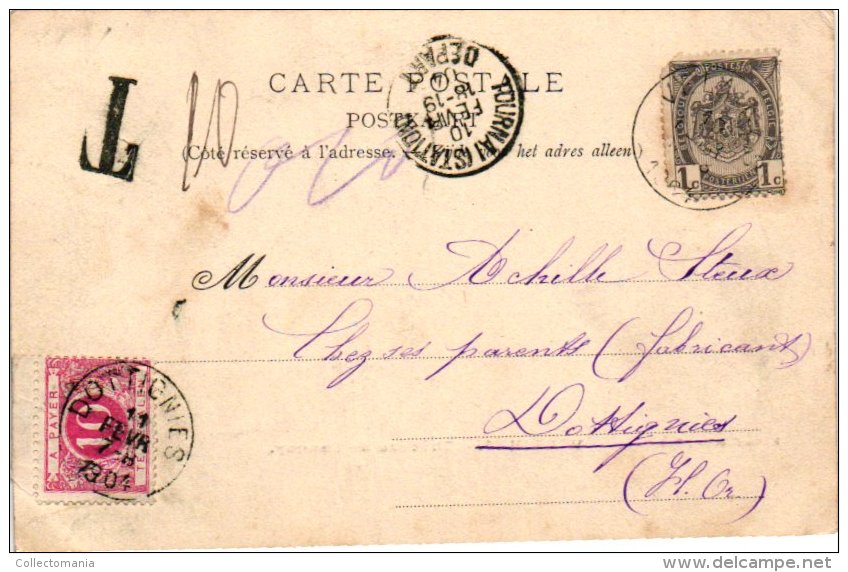 CARTE POSTALE
POSTKAART
(Côté réservé à l'adresse. het adres alleen)
T
10
TOURNAI (STATION)
10
FEVR
18-19
04
DEPART
POSTES
BELGIQUE BELGIE
POSTERIJEN
1c 1c
Monsieur Achille Steux
Chez ses parents (fabricant)
Dottignies
(H. Or)
A PAYER
10
TE
DOTTIGNIES
11
FEVR
7-8
1904
Collectomania
www.delcampe.net